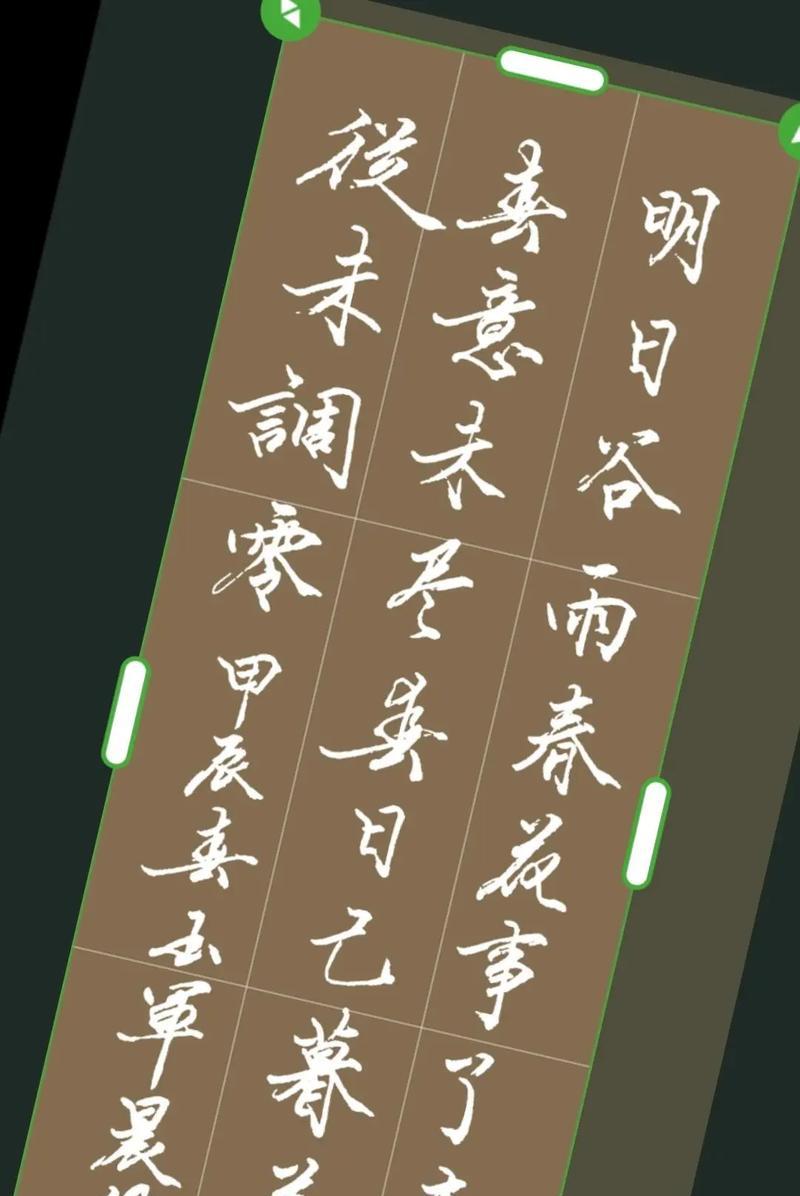 明日谷雨春花事了
春意未尽春日已暮
從未調零甲辰春玉軍晨